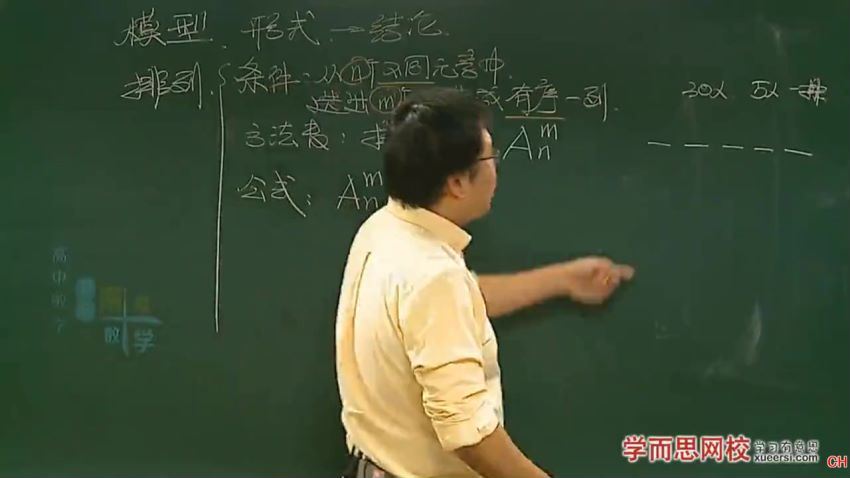 模型. 形式 → 结论.
排列. 条件: 从n个不同元素中.
选出m个 有序一列.
30人 5人一排
方法数: 排 A_n^m
公式: A_n^m
高中数学
数学
学而思网校 学习有意思
xueersi.com
CH